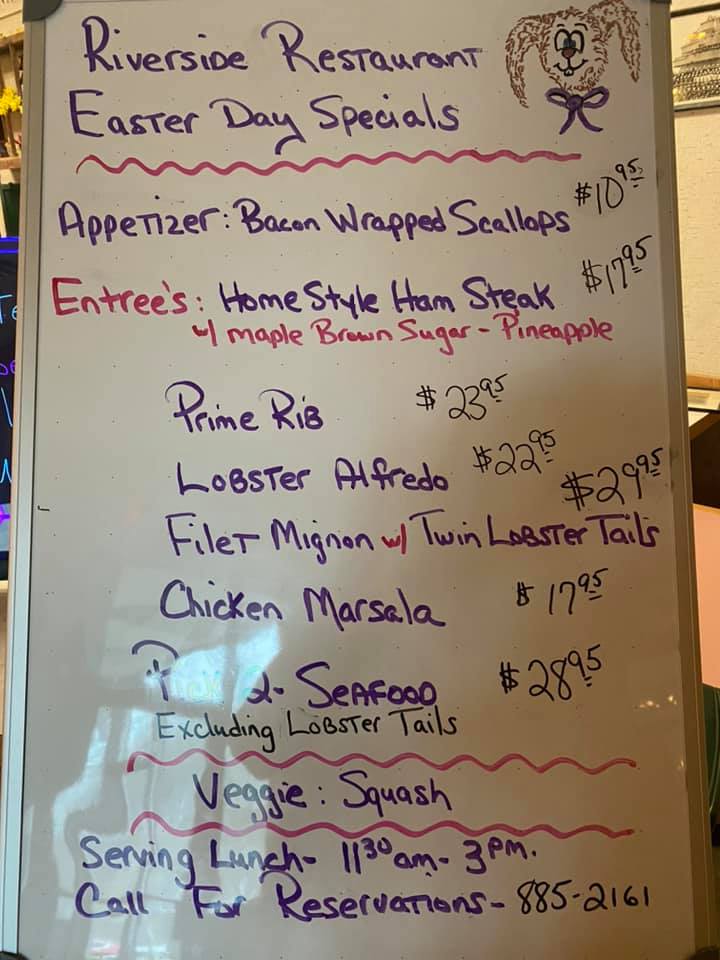 Riverside Restaurant
Easter Day Specials
Appetizer: Bacon Wrapped Scallops $10.95
Entree's: Home Style Ham Steak $17.95
w/ maple Brown Sugar - Pineapple
Prime Rib $23.95
Lobster Alfredo $22.95
Filet Mignon w/ Twin Lobster Tails $29.95
Chicken Marsala $17.95
Pick 2 - Seafood $28.95
Excluding Lobster Tails
Veggie: Squash
Serving Lunch - 11 30 am - 3 pm.
Call For Reservations - 885-2161